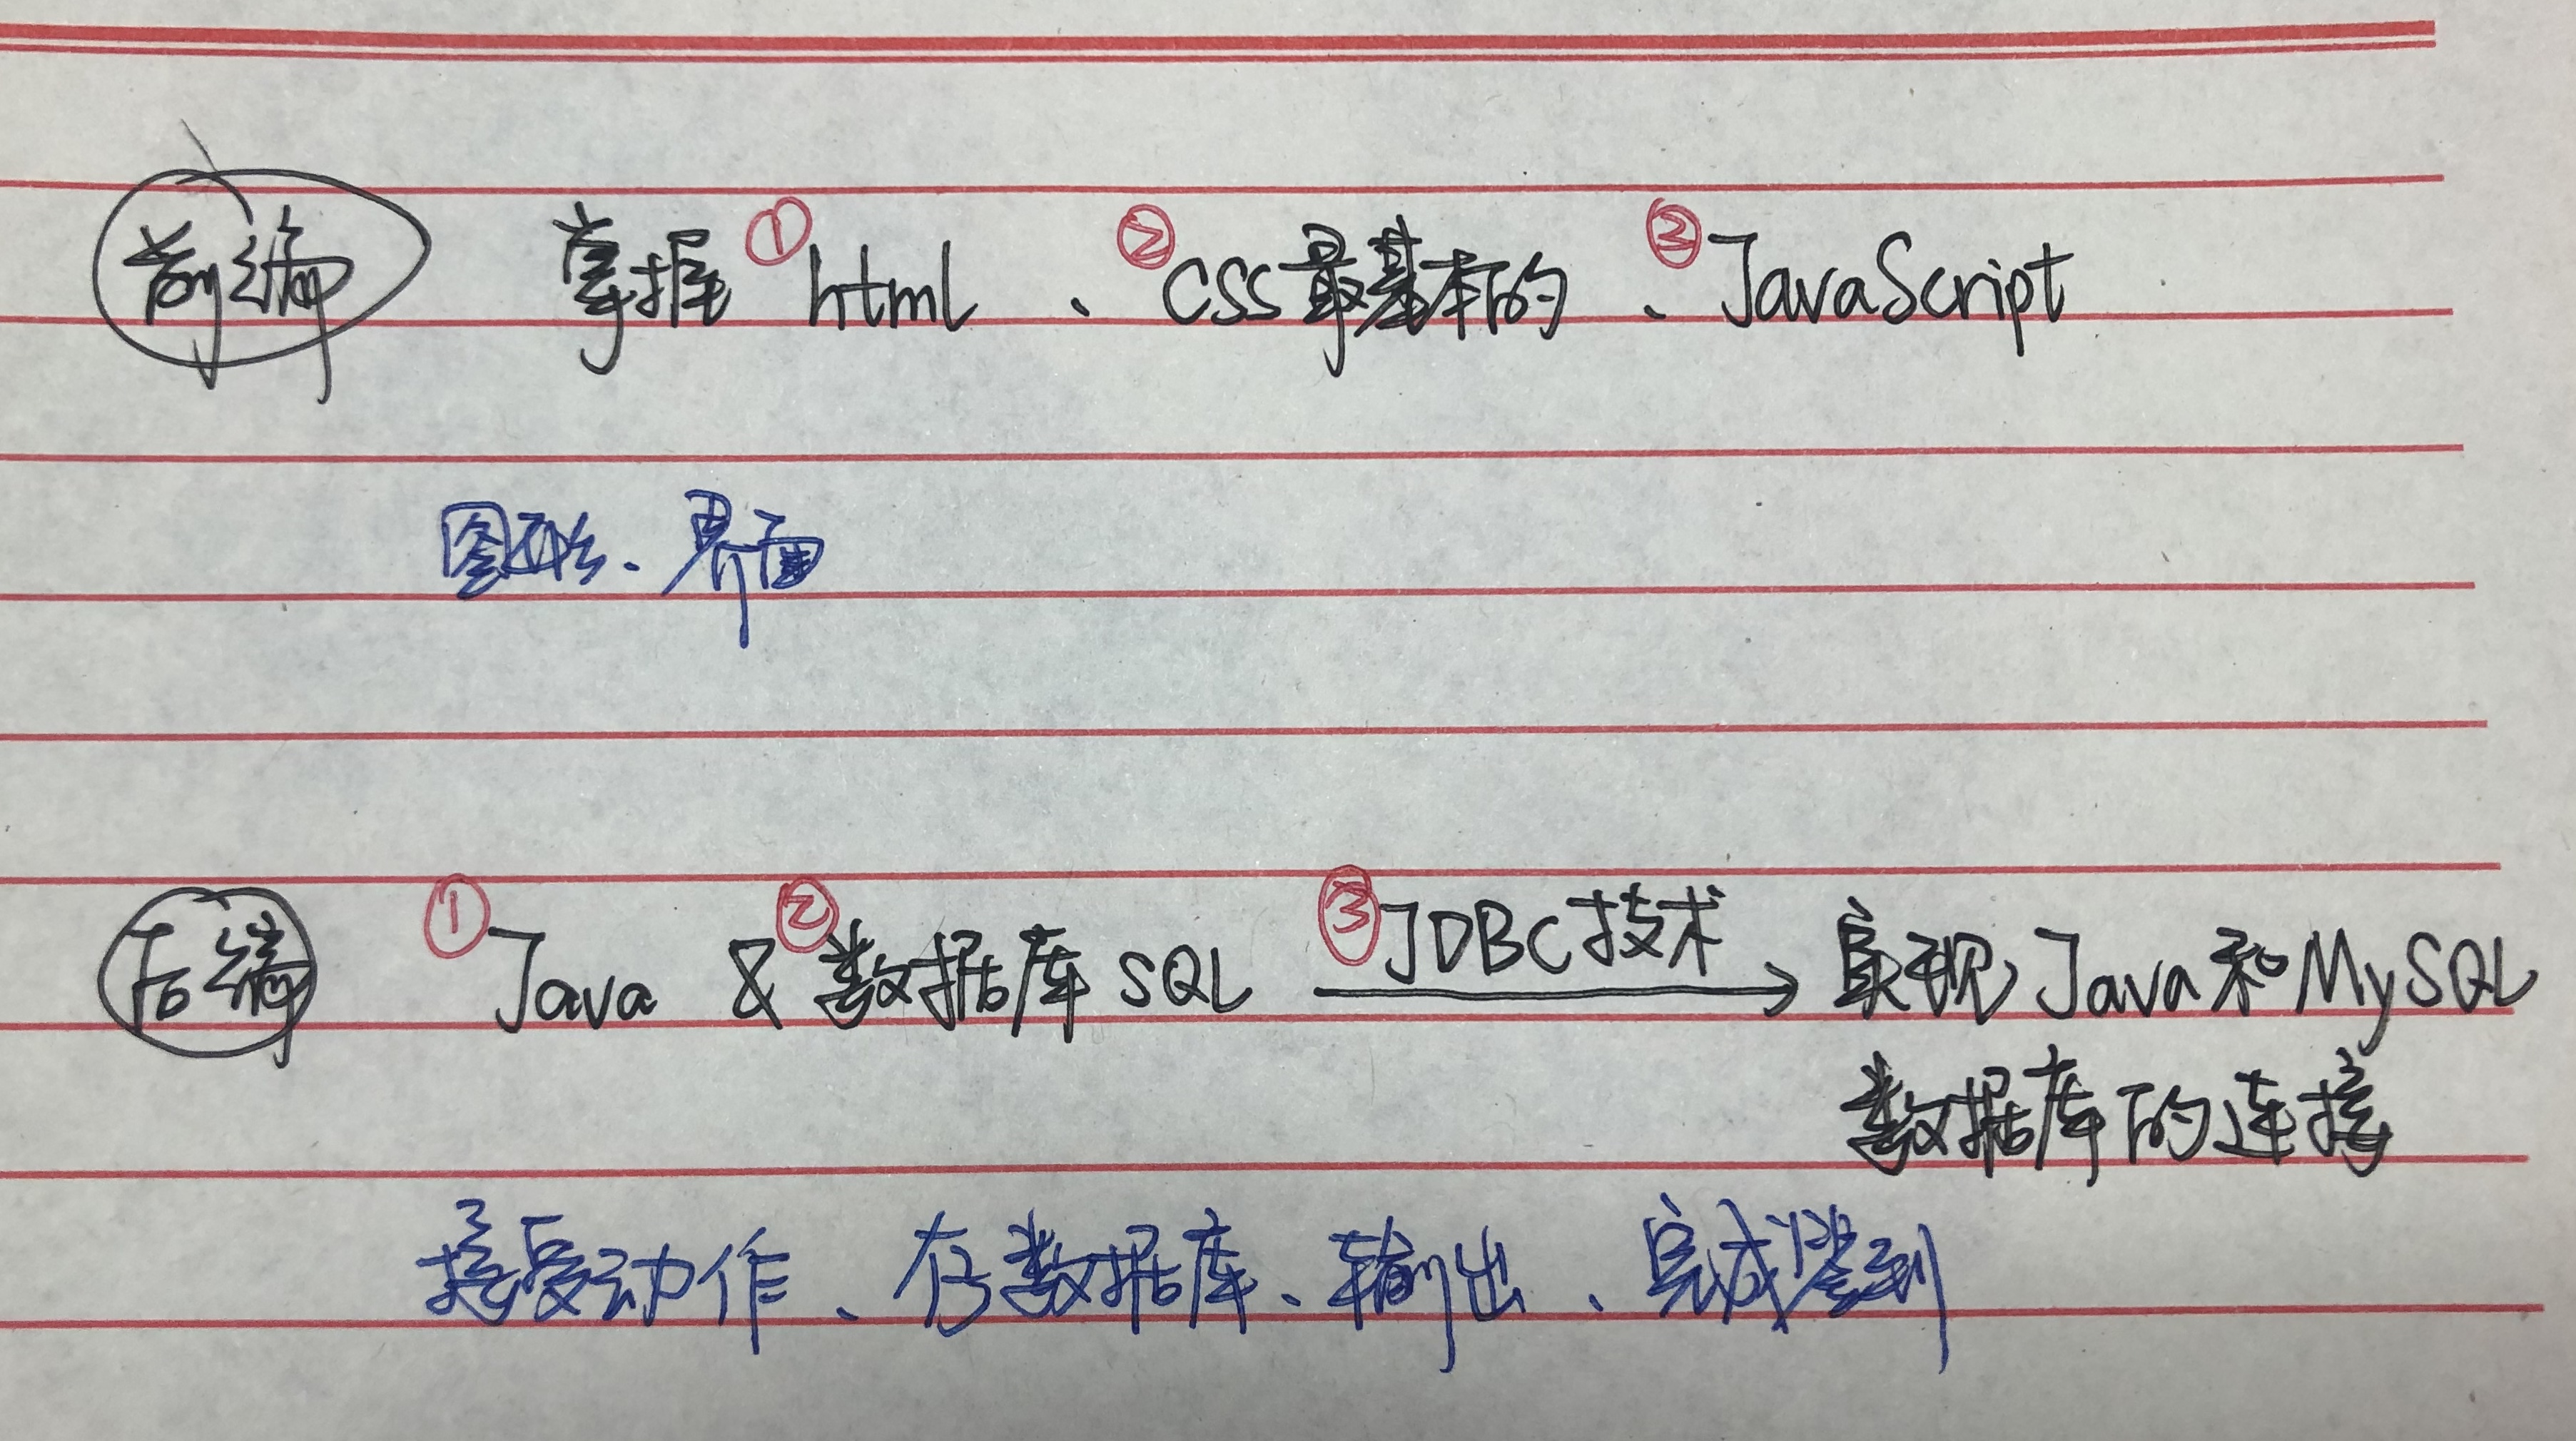 前端 掌握 ①html 、 ②CSS最基本的 、 ③JavaScript
图形、界面
后端 ①Java & ②数据库SQL ③JDBC技术 → 实现Java和MySQL
数据库的连接
接受动作、存数据库、输出、完成签到